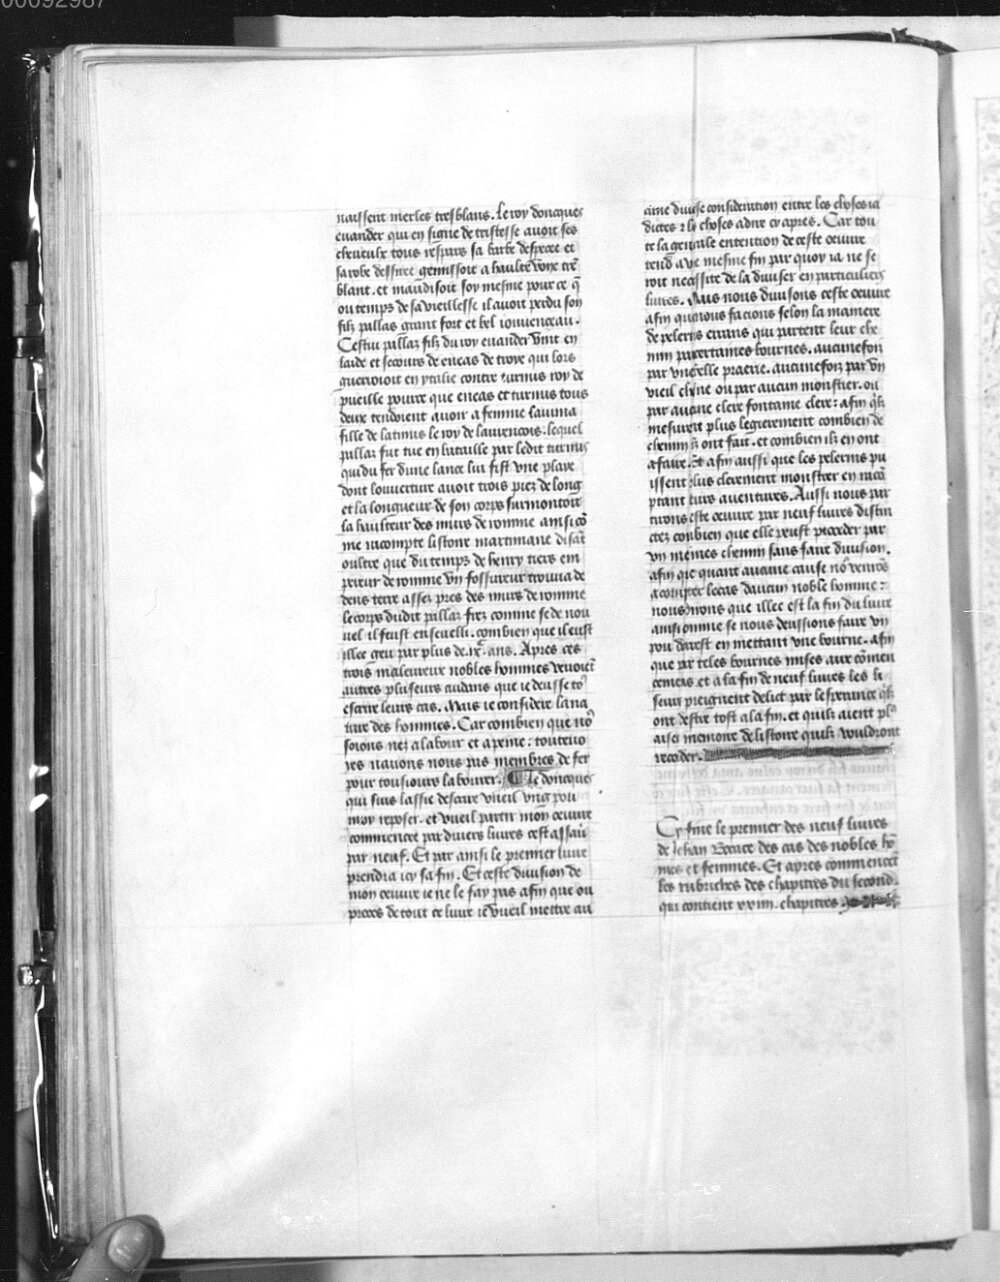 00092987
naissent merles tresblans. Le roy doncques
euander qui en signe de tristesse auoit ses
cheueulx tous respars sa barbe desiree et
sa robe dessiree gemissoit a haulte voix trē
blant. et maudisoit soy mesme pour ce q̄
ou temps de sa vieillesse il auoit perdu son
filz pallas grant fort et bel iouuenceau.
Cestui pallas filz du roy euander vint en
laide et secours de eneas de troye qui lors
guerroioit en ytalie contre turnus roy de
pueille pource que eneas et turnus tous
deux tendoient auoir a femme lauina
fille de latinus le roy de laurencois. lequel
pallas fut tue en bataille par ledit turnus
qui du fer dune lance lui fist vne playe
dont louuerture auoit trois piez de long
et la longueur de son corps surmontoit
la haulteur des murs de romme ainsi cō
me racompte listoire martiniane disāt
oultre que du temps de henry tiers em
pereur de romme vn fossoieur trouua de
dens terre assez pres des murs de romme
le corps dudit pallas frez comme se de nou
uel il feust enseueli. combien que il eust
illec geu par plus de .ix. ans. Apres ces
trois maleureux nobles hommes venoiēt
autres plusieurs cuidans que ie deusse to9
escrire leurs cas. Mais ie considere la na
ture des hommes. Car combien que no9
soions nez a labour et a peine: toutesuo
ies nauons nous pas membres de fer
pour tousiours labourer. ¶ Ie doncques
qui suis lasse desaire vueil vng pou
moy reposer. et vueil partir mon oeuure
commencee par diuers liures cest assauoir
par neuf. Et par ainsi le premier liure
prendra icy sa fin. Et ceste diuision de
mon oeuure ie ne le fay pas afin que ou
proces de tout ce liure ie vueil mettre au
cune diuise consideration entre les choses ia
dictes et les choses a dire cy apres. Car tou
te la generale entention de ceste oeuure
tend a vne mesme fin par quoy ia ne se
roit necessite de la diuiser en particuliers
liures. Mais nous diuisons ceste oeuure
afin que nous facions selon la maniere
de pelerins errans qui partent leur che
min par certaines bournes. aucunefoiz
par vne belle praerie. aucunefoiz par vn
vieil chesne ou par aucun monstier. ou
par aucune clere fontaine clere: afin qlz
mesurent plus legierement combien de
chemin ilz ont fait. et combien ilz en ont
a faire. Et afin aussi que les pelerins pu
issent plus clerement monstrer en racō
ptant leurs auentures. Aussi nous par
tirons ceste oeuure par neuf liures distin
ctez combien que elle peust proceder par
vn mēmes chemin sans faire diuision.
afin que quant aucune cause no9 venrōs
a compter le cas daucun noble homme:
nous dirons que illec est la fin du liure
ainsi comme se nous deussions faire vn
pou darrest en mettant vne bourne. afin
que par teles bournes mises aux cōmen
cemens et a la fin de neuf liures les li
seurs preignent delict par lesperance qlz
ont destre tost a la fin. et quilz aient pl9
aisei memoire de listoire quilz vouldront
recorder.
Cy fine le premier des neuf liures
de Jehan Bocace des cas des nobles hō
mes et femmes. Et apres commencēt
les rubriches des chapitres du second.
qui contient xxiiii. chapitres